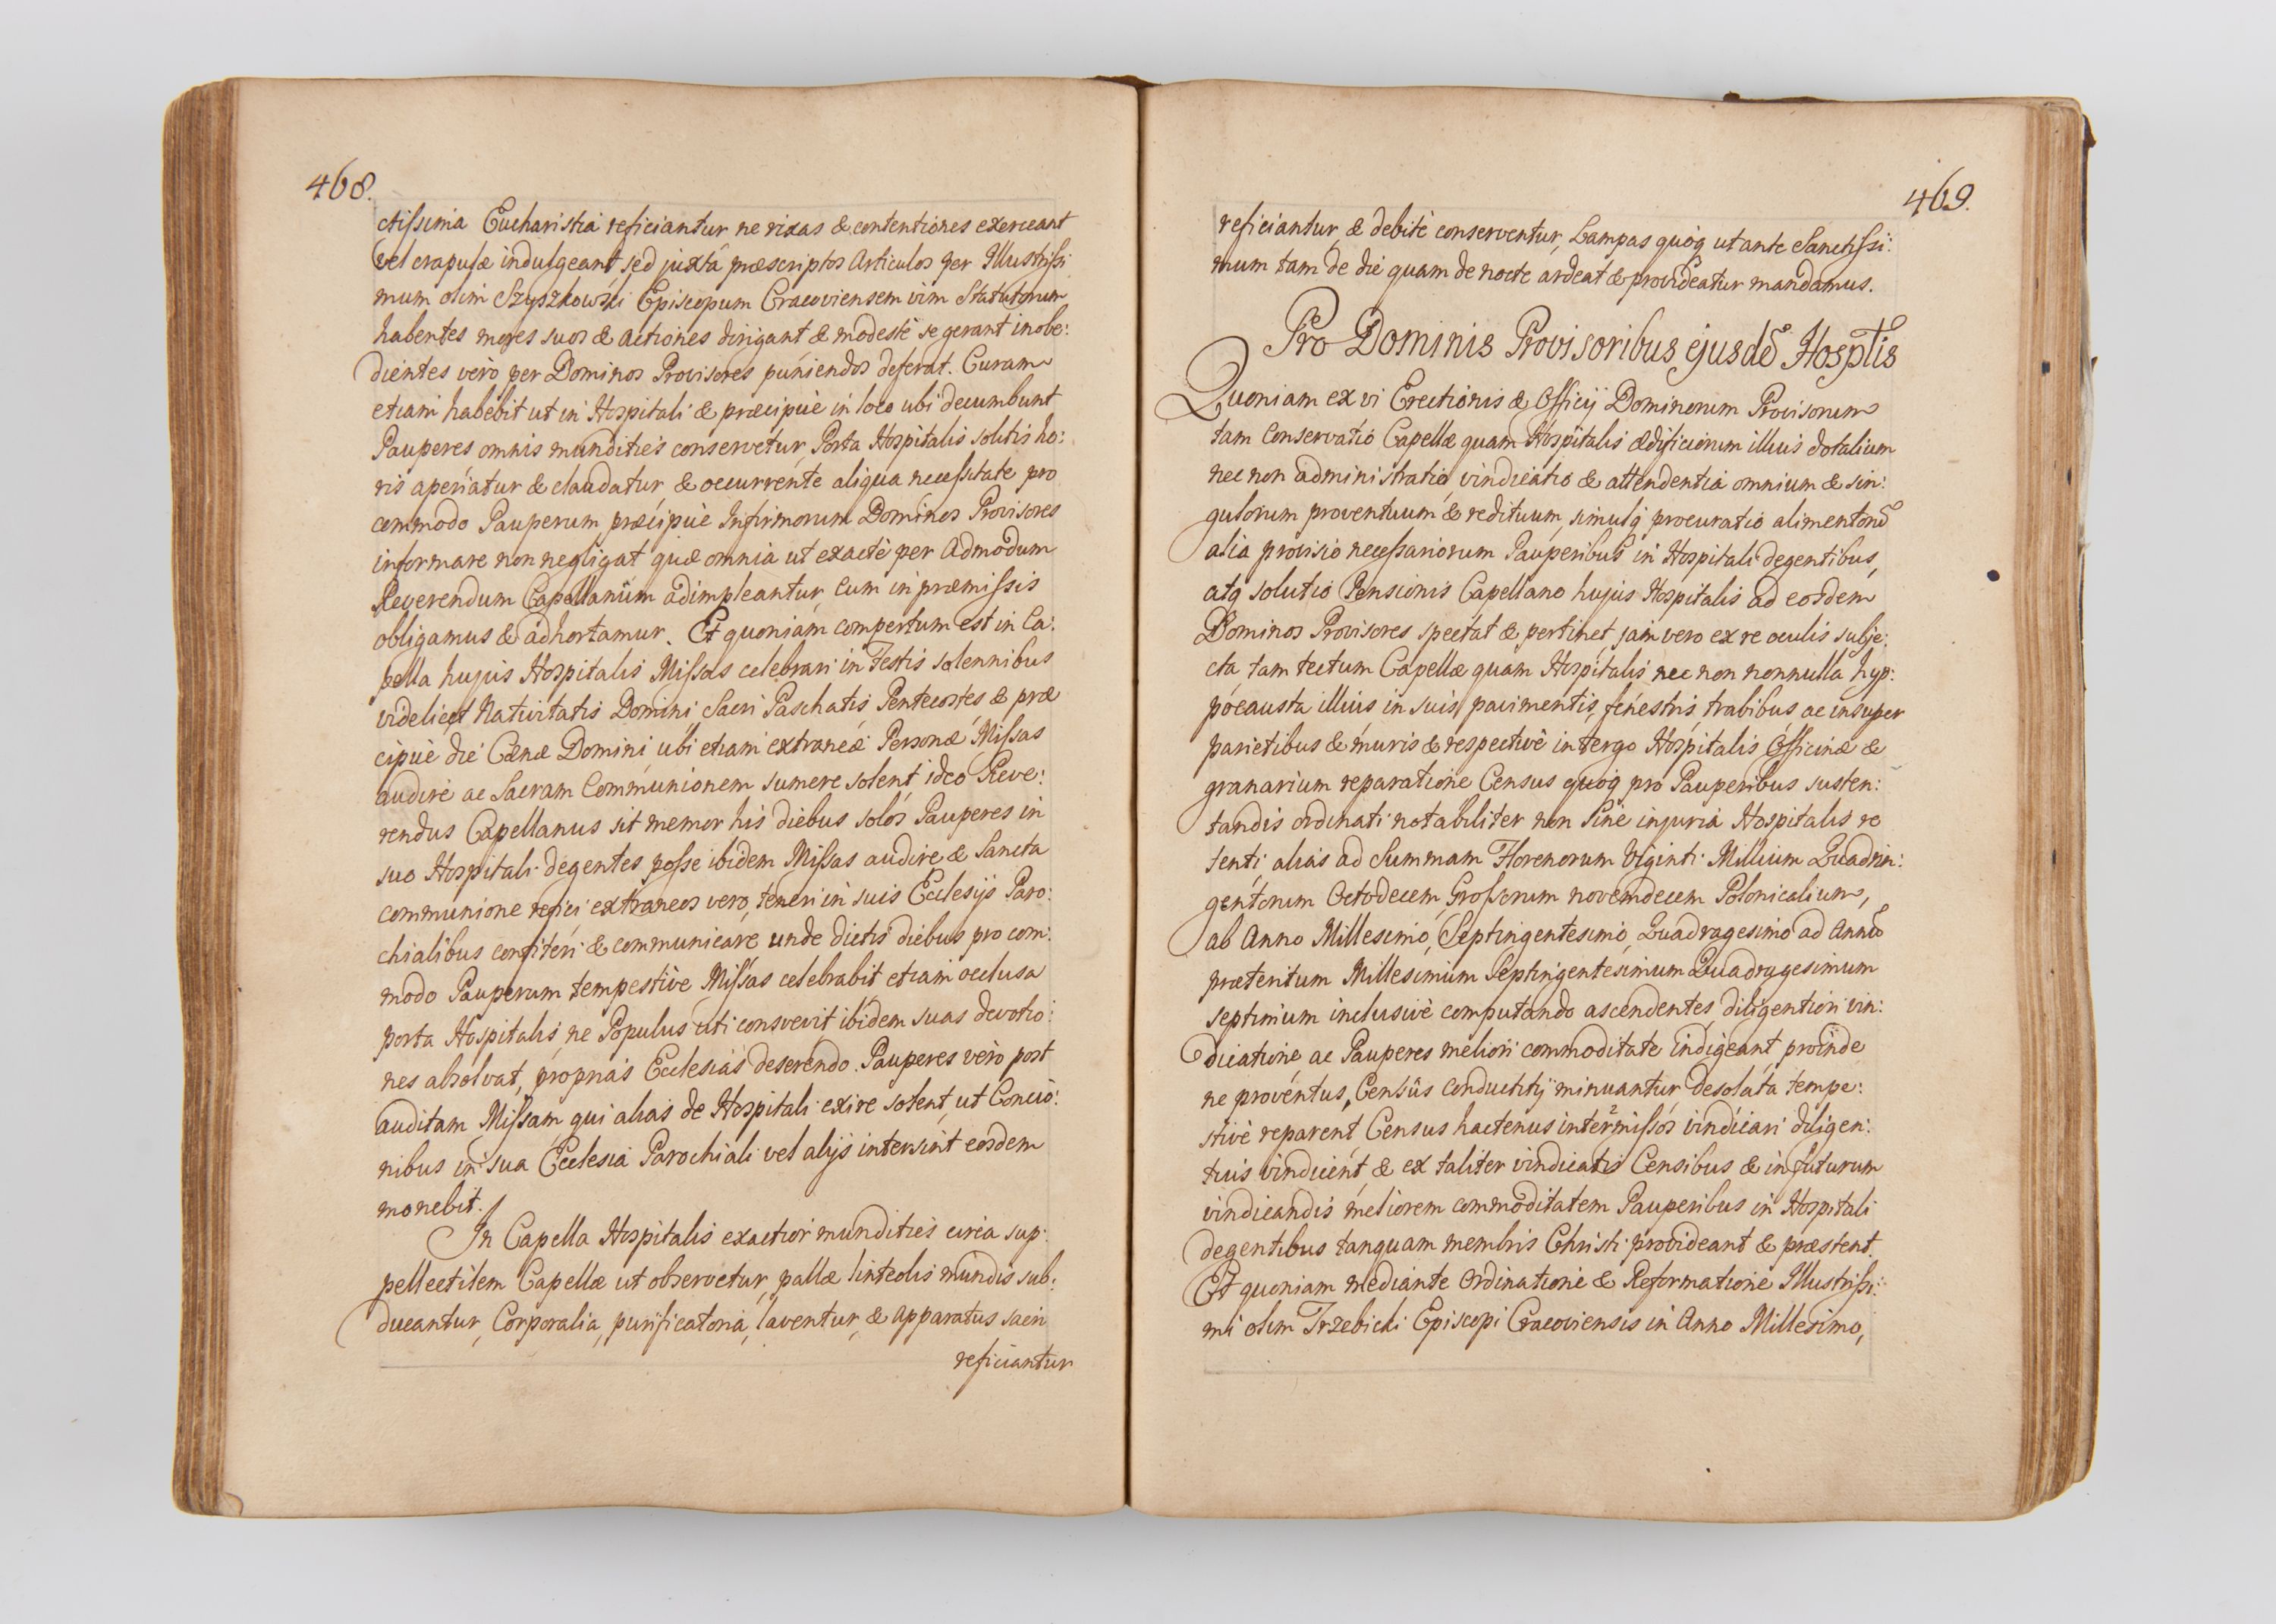 468.
ctissima Eucharistia reficiantur ne rixas & contentiones exerceant
vel crapulæ indulgeant sed juxtà præscriptos Articulos per Illustrissi
mum olim Szyszkowski Episcopum Cracoviensem vim Statutorum
habentes mores suos & actiones dirigant & modestè se gerant inobe:
dientes verò per Dominos Provisores puniendos deferat. Curam
etiam habebit ut in Hospitali & præcipuè in loco ubi decumbunt
Pauperes omnis mundities conservetur, Porta Hospitalis solitis ho:
ris aperiatur & claudatur, & occurrente aliqua necessitate pro
commodo Pauperum præcipuè Infirmorum Dominos Provisores
informare non negligat quæ omnia ut exactè per Admodum
Reverendum Capellanum adimpleantur, eum in præmissis
obligamus & adhortamur. Et quoniam compertum est in Ca:
pella hujus Hospitalis Missas celebrari in Festis solennibus
videlicet Nativitatis Domini Sacri Paschatis Pentecostes & præ
cipuè die Cænæ Domini, ubi etiam extraneæ Personæ Missas
audire ac Sacram Communionem sumere solent, ideo Reve:
rendus Capellanus sit memor his diebus solos Pauperes in
suo Hospitali degentes posse ibidem Missas audire & Sancta
communione refici extraneos vero, teneri in suis Ecclesijs Paro:
chialibus confiteri & communicare unde dictis diebus pro com:
modo Pauperum tempestivè Missas celebrabit etiam occlusa
porta Hospitalis, ne Populus uti consvevit ibidem suas devotio:
nes absolvat, proprias Ecclesias deserendo. Pauperes verò post
auditam Missam qui alias de Hospitali exire solent, ut Concio:
nibus in sua Ecclesia Parochiali vel alijs intersint eosdem
monebit.
In Capella Hospitalis exactior mundities circa sup:
pellectilem Capellæ ut observetur, pallæ linteolis mundis sub:
ducantur, Corporalia, purificatoria, laventur, & apparatus sacri
reficiantur
469.
reficiantur, & debitè conserventur, Lampas quoq ut ante Sanctissi:
mum tam de die quam de nocte ardeat & provideatur mandamus.
Pro Dominis Provisoribus ejusdẽ Hosptlis
Quoniam ex vi Erectionis & Officij Dominorum Provisorum
tam Conservatio Capellæ quam Hospitalis ædificiorum illius dotalium
nec non administratio, vindicatio & attendentia omnium & sin:
gulorum proventuum & redituum, simulq procuratio alimentorũ
alia provisio necessariorum Pauperibus in Hospitali degentibus,
atq solutio Pensionis Capellano hujus Hospitalis ad eosdem
Dominos Provisores spectat & pertinet, jam vero ex re oculis subje:
cta, tam tectum Capellæ quam Hospitalis, nec non nonnulla hyp:
pocausta illius in suis pavimentis, fenestris, trabibus, ac insuper
parietibus & muris & respectivè in tergo Hospitalis Officinæ &
granarium reparatione Census quoq pro Pauperibus susten:
tandis ordinati notabiliter non Sine injuria Hospitalis re
tenti alias ad Summam Florenorum Viginti Millium Quadrin:
gentorum Octodecem, Grossorum novemdecem Polonicalium,
ab Anno Millesimo, Septingentesimo, Quadragesimo ad Annũ
præteritum Millesimum Septingentesimum Quadragesimum
septimum inclusivè computando ascendentes, diligentiori vin:
dicatione, ac Pauperes meliori commoditate indigeant, proinde
ne proventus, Censûs conductitij minuantur, desolata tempe:
stivè reparent, Census hactenus intermissos vindicari diligen:
tius vindicent, & ex taliter vindicatis Censibus & in futurum
vindicandis meliorem commoditatem Pauperibus in Hospitali
degentibus tanquam membris Christi provideant & præstent.
Et quoniam mediante Ordinatione & Reformatione Illustrissi:
mi olim Trzebicki Episcopi Cracoviensis in Anno Millesimo,